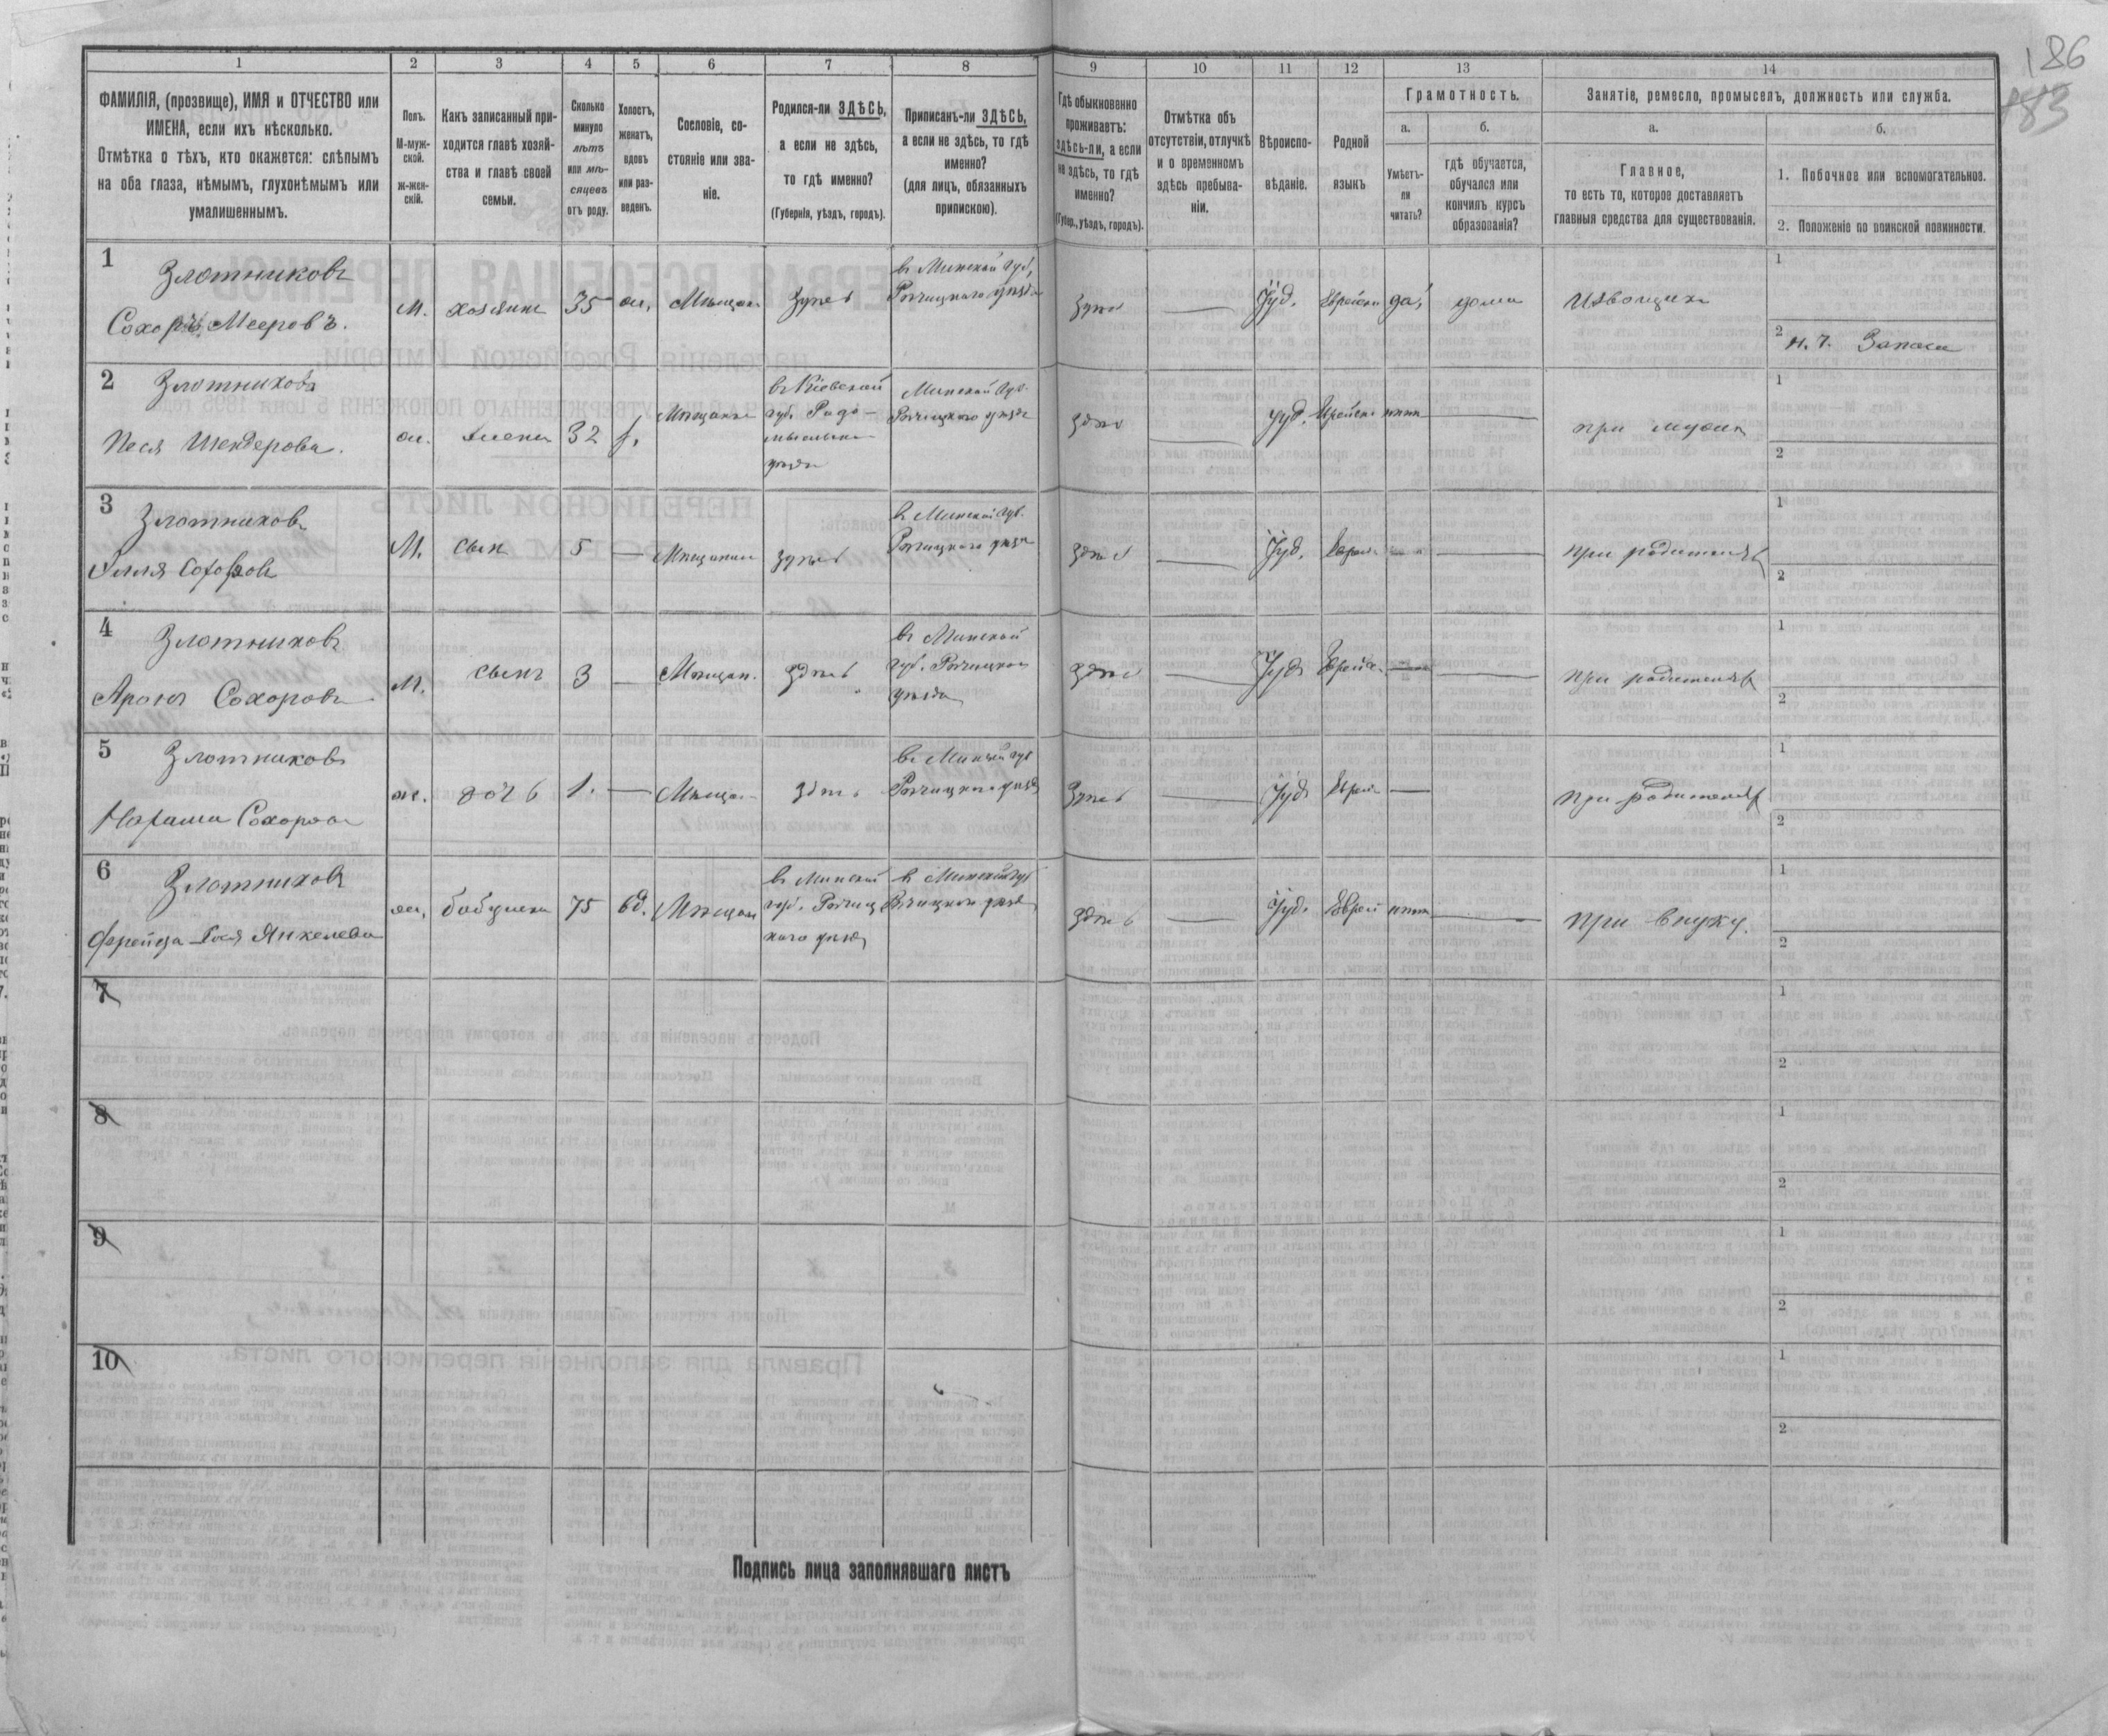 186
183
1
2
3
4
5
6
7
8
9
10
11
12
13
14
ФАМИЛІЯ, (прозвище), ИМЯ и ОТЧЕСТВО или
ИМЕНА, если ихъ нѣсколько.
Отмѣтка о тѣхъ, кто окажется: слѣпымъ
на оба глаза, нѣмымъ, глухонѣмымъ или
умалишеннымъ.
Полъ.
М-муж-
ской.
ж-жен-
скій.
Какъ записанный при-
ходится главѣ хозяй-
ства и главѣ своей
семьи.
Сколько
минуло
лѣтъ
или мѣ-
сяцевъ
отъ роду.
Холостъ,
женатъ,
вдовъ
или раз-
веденъ.
Сословіе, со-
стояніе или зва-
ніе.
Родился-ли ЗДѢСЬ,
а если не здѣсь,
то гдѣ именно?
(Губернія, уѣздъ, городъ).
Приписанъ-ли ЗДѢСЬ,
а если не здѣсь, то гдѣ
именно?
(для лицъ, обязанныхъ
припискою).
Гдѣ обыкновенно
проживаетъ:
здѣсь-ли, а если
не здѣсь, то гдѣ
именно?
(Губер., уѣздъ, городъ).
Отмѣтка объ
отсутствіи, отлучкѣ
и о временномъ
здѣсь пребыва-
ніи.
Вѣроиспо-
вѣданіе.
Родной
языкъ
Грамотность.
а.
Умѣетъ-
ли
читать?
б.
гдѣ обучается,
обучался или
кончилъ курсъ
образованія?
Занятіе, ремесло, промыселъ, должность или служба.
а.
Главное,
то есть то, которое доставляетъ
главныя средства для существованія.
б.
1. Побочное или вспомогательное.
2. Положеніе по воинской повинности.
1
Злотниковъ
Сохоръ Мееровъ.
М.
хозяинъ
35
ж.
Мѣщан
Здѣсь
въ Минской губ,
Рѣчицкаго уѣзда
Здѣсь
Іуд.
Еврейск
да,
дома
Извощикъ
1
2
Н. Ч. Запаса
2
Злотникова
Песя Шендерова.
ж.
жена
32
з.
Мѣщанка
въ Кіевской
губ. Радо-
мысльск
уѣзда
Минской губ.
Рѣчицкаго уѣзда
Здѣсь
Іуд.
Еврейск
нѣтъ
при мужѣ
1
2
3
Злотниковъ
Сохоровъ
М.
сынъ
5
Мѣщанинъ
здѣсь
въ Минской губ.
Рѣчицкаго уѣзда
здѣсь
Іуд.
Еврей
при родителяхъ
1
2
4
Злотниковъ
Аронъ Сохоровъ
М.
сынъ
3
Мѣщан.
здѣсь
въ Минской
губ. Рѣчицкаго
уѣзда
здѣсь
Іуд
Еврейск
при родителяхъ
1
2
5
Злотникова
Сохорова
ж.
дочь
1.
Мѣщан
здѣсь
въ Минской губ
Рѣчицкаго уѣзда
Здѣсь
Іуд
Еврей
при родителяхъ
1
2
6
Злотникова
Фрейда-Рося Янкелева
ж,
бабушка
75
вд.
Мѣщан
въ Минской
губ. Рѣчиц
каго уѣзда
въ Минской губ
Рѣчицкаго уѣзда
здѣсь
Іуд.
Еврей
нѣтъ
при внуку.
1
2
7
1
2
8
1
2
9
1
2
10
1
2
Подпись лица заполнявшаго листъ